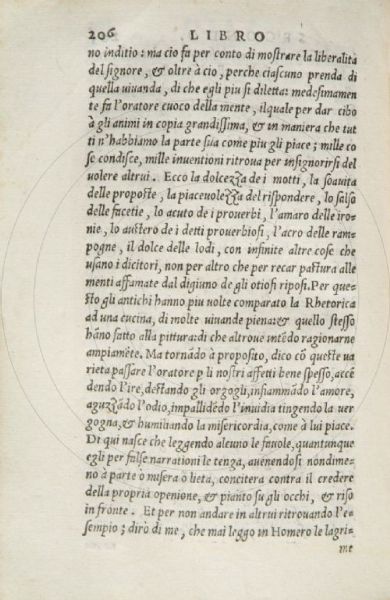 206 LIBRO
no inditio : ma cio fa per conto di mostrare la liberalità
del signore, & oltre à cio, perche ciascuno prenda di
quella uiuanda, di che egli piu si diletta: medesimamen
te fa l'oratore cuoco della mente, ilquale per dar cibo
à gli animi in copia grandissima, & in maniera che tut
ti n'habbiamo la parte sua come piu gli piace; mille co
se condisce, mille inuentioni ritroua per insignorirsi del
uolere altrui. Ecco la dolcezza de i motti, la soauita
delle proposte, la piaceuolezza del rispondere, lo salso
delle facetie, lo acuto de i prouerbi, l'amaro delle iro-
nie, lo austero de i detti prouerbiosi, l'acro delle ram-
pogne, il dolce delle lodi, con infinite altre cose che
usano i dicitori, non per altro che per recar pastura alle
menti affamate dal digiuno de gli otiosi riposi. Per que-
sto gli antichi hanno piu uolte comparato la Rhetorica
ad una cucina, di molte uiuande piena: & quello stesso
hāno fatto alla pittura: di che altroue intēdo ragionarne
ampiamēte. Ma tornādo à proposito, dico cō queste ua
rieta passare l'oratore p li nostri affetti bene spesso, accē
dendo l'ire, destando gli orgogli, infiammādo l'amore,
aguzzādo l'odio, impallidēdo l'inuidia tingendo la uer
gogna, & humiliando la misericordia, come à lui piace.
Di qui nasce che leggendo alcuno le fauole, quantunque
egli per false narrationi le tenga, auenendosi nondime-
no à parte ò misera ò lieta, concitera contra il credere
della propria openione, & pianto su gli occhi, & riso
in fronte. Et per non andare in altrui ritrouando l'es-
sempio; dirò di me, che mai leggo in Homero le lagri-
me